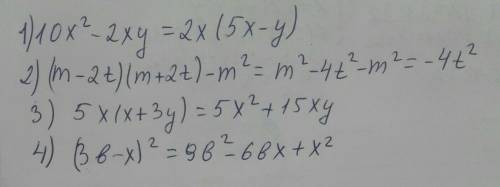 1) 10x² - 2xy = 2x (5x - y)
2) (m - 2t)(m + 2t) - m² = m² - 4t² - m² = -4t²
3) 5x(x + 3y) = 5x² + 15xy
4) (3в - x)² = 9в² - 6вx + x²